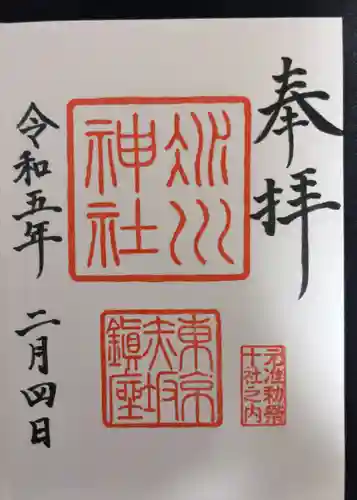 奉拝
氷川
神社
東京
赤坂
鎮座
准勅祭
十社之内
令和五年 二月四日